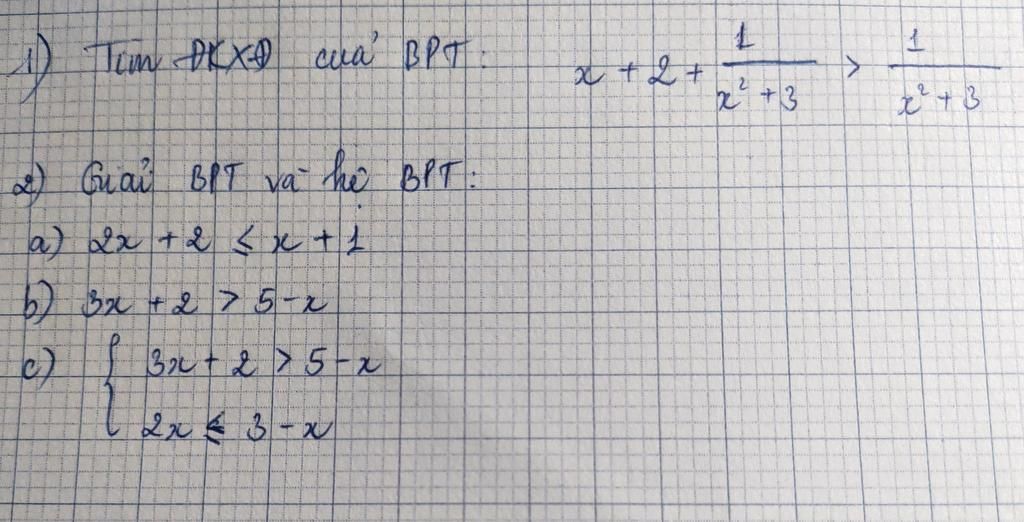 1) Tìm ĐKXĐ của BPT: x + 2 + 1/(x² + 3) > 1/(x² + 3)
2) Giải BPT và hệ BPT:
a) 2x + 2 ≤ x + 1
b) 3x + 2 > 5 - x
c) { 3x + 2 > 5 - x
2x ≤ 3 - x